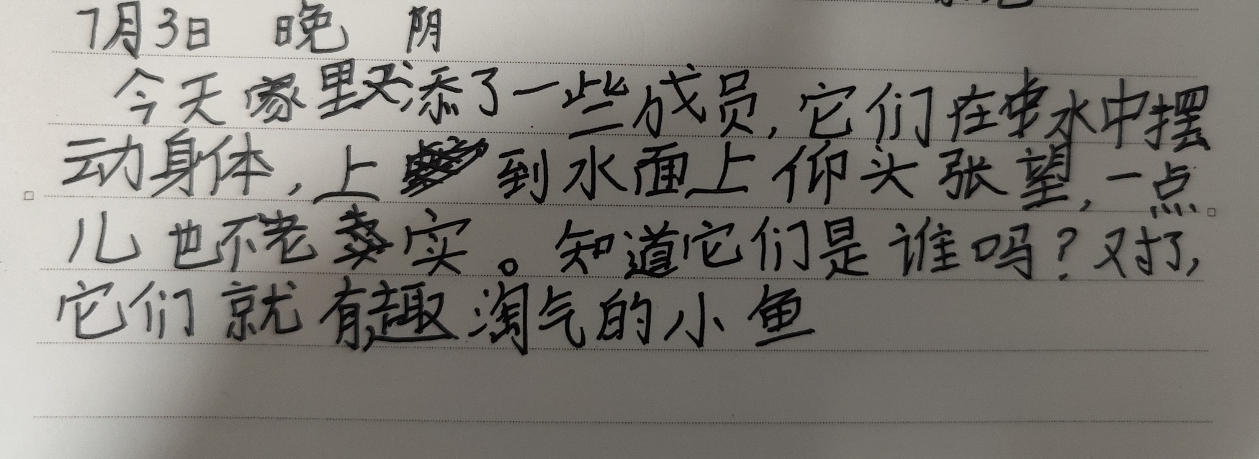 7月3日 晚 阴
今天家里又添了一些成员,它们在水中摆
动身体,上到水面上仰头张望,一点
儿也不老实。知道它们是谁吗?对了,
它们就有趣淘气的小鱼